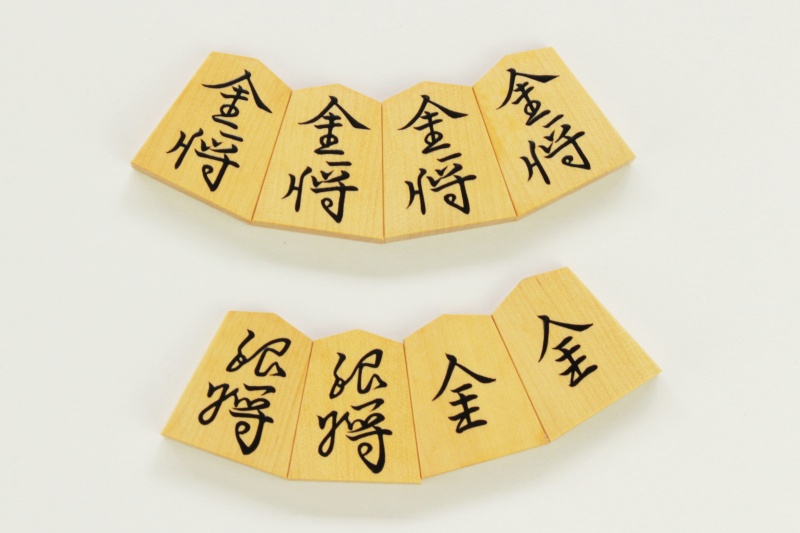 金将
金将
金将
金将
銀将
銀将
全
全